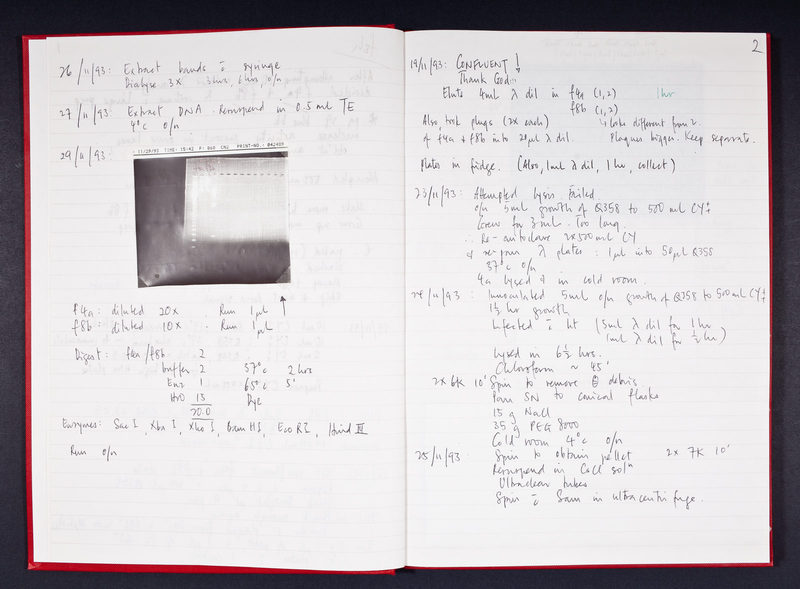 26/11/93: Extract bands c̄ syringe
Dialyse 3x 3hrs, 6hrs, o/n
27/11/93: Extract DNA. Resuspend in 0.5 ml TE
4°c o/n
29/11/93:
11/29/93 TIME: 15:42 PRINT-NO.: 042409
f4a: diluted 20x. Run 1µl
f8b: diluted 10x. Run 1µl
Digest: f4a/f8b 2
buffer 2 37°c 2hrs
Enz 1 65°c 5'
H2O 15 Dye
20.0
Enzymes: Sac I, Xba I, Xho I, Bam HI, Eco RI, Hind III
Run o/n
2
19/11/93: CONFLUENT!
Thank God..
Elute 4ml λ dil in f4a (1,2) 1hr
f8b (1,2)
Also, took plugs (2x each) 1 looks different from 2.
of f4a + f8b into 20µl λ dil. Plaques bigger. Keep separate.
Plates in fridge. (Also, 1ml λ dil, 1hr, collect)
23/11/93: Attempted lysis failed
o/n 5ml growth of Q358 to 500ml CY++
Grew for 3 hrs. Too long.
∴ Re-autoclave 2x500ml CY
& re-grow λ plates: 1µl into 50µl Q358
37°c o/n
4a lysed & in cold room.
24/11/93: Innoculated 5ml o/n growth of Q358 to 500ml CY++
1½ hr growth
Infected c̄ ht (5ml λ dil for 1hr
1ml λ dil for ½hr)
Lysed in 6½ hrs.
Chloroform ~ 45'
2x 6K 10' Spin to remove debris
Pour SN to conical flasks
15g NaCl
35g PEG 8000
Cold room 4°c o/n
25/11/93 Spin to obtain pellet 2x 7K 10'
Resuspend in CsCl solⁿ
Ultraclear tubes
Spin c̄ Sam in ultracentrifuge.